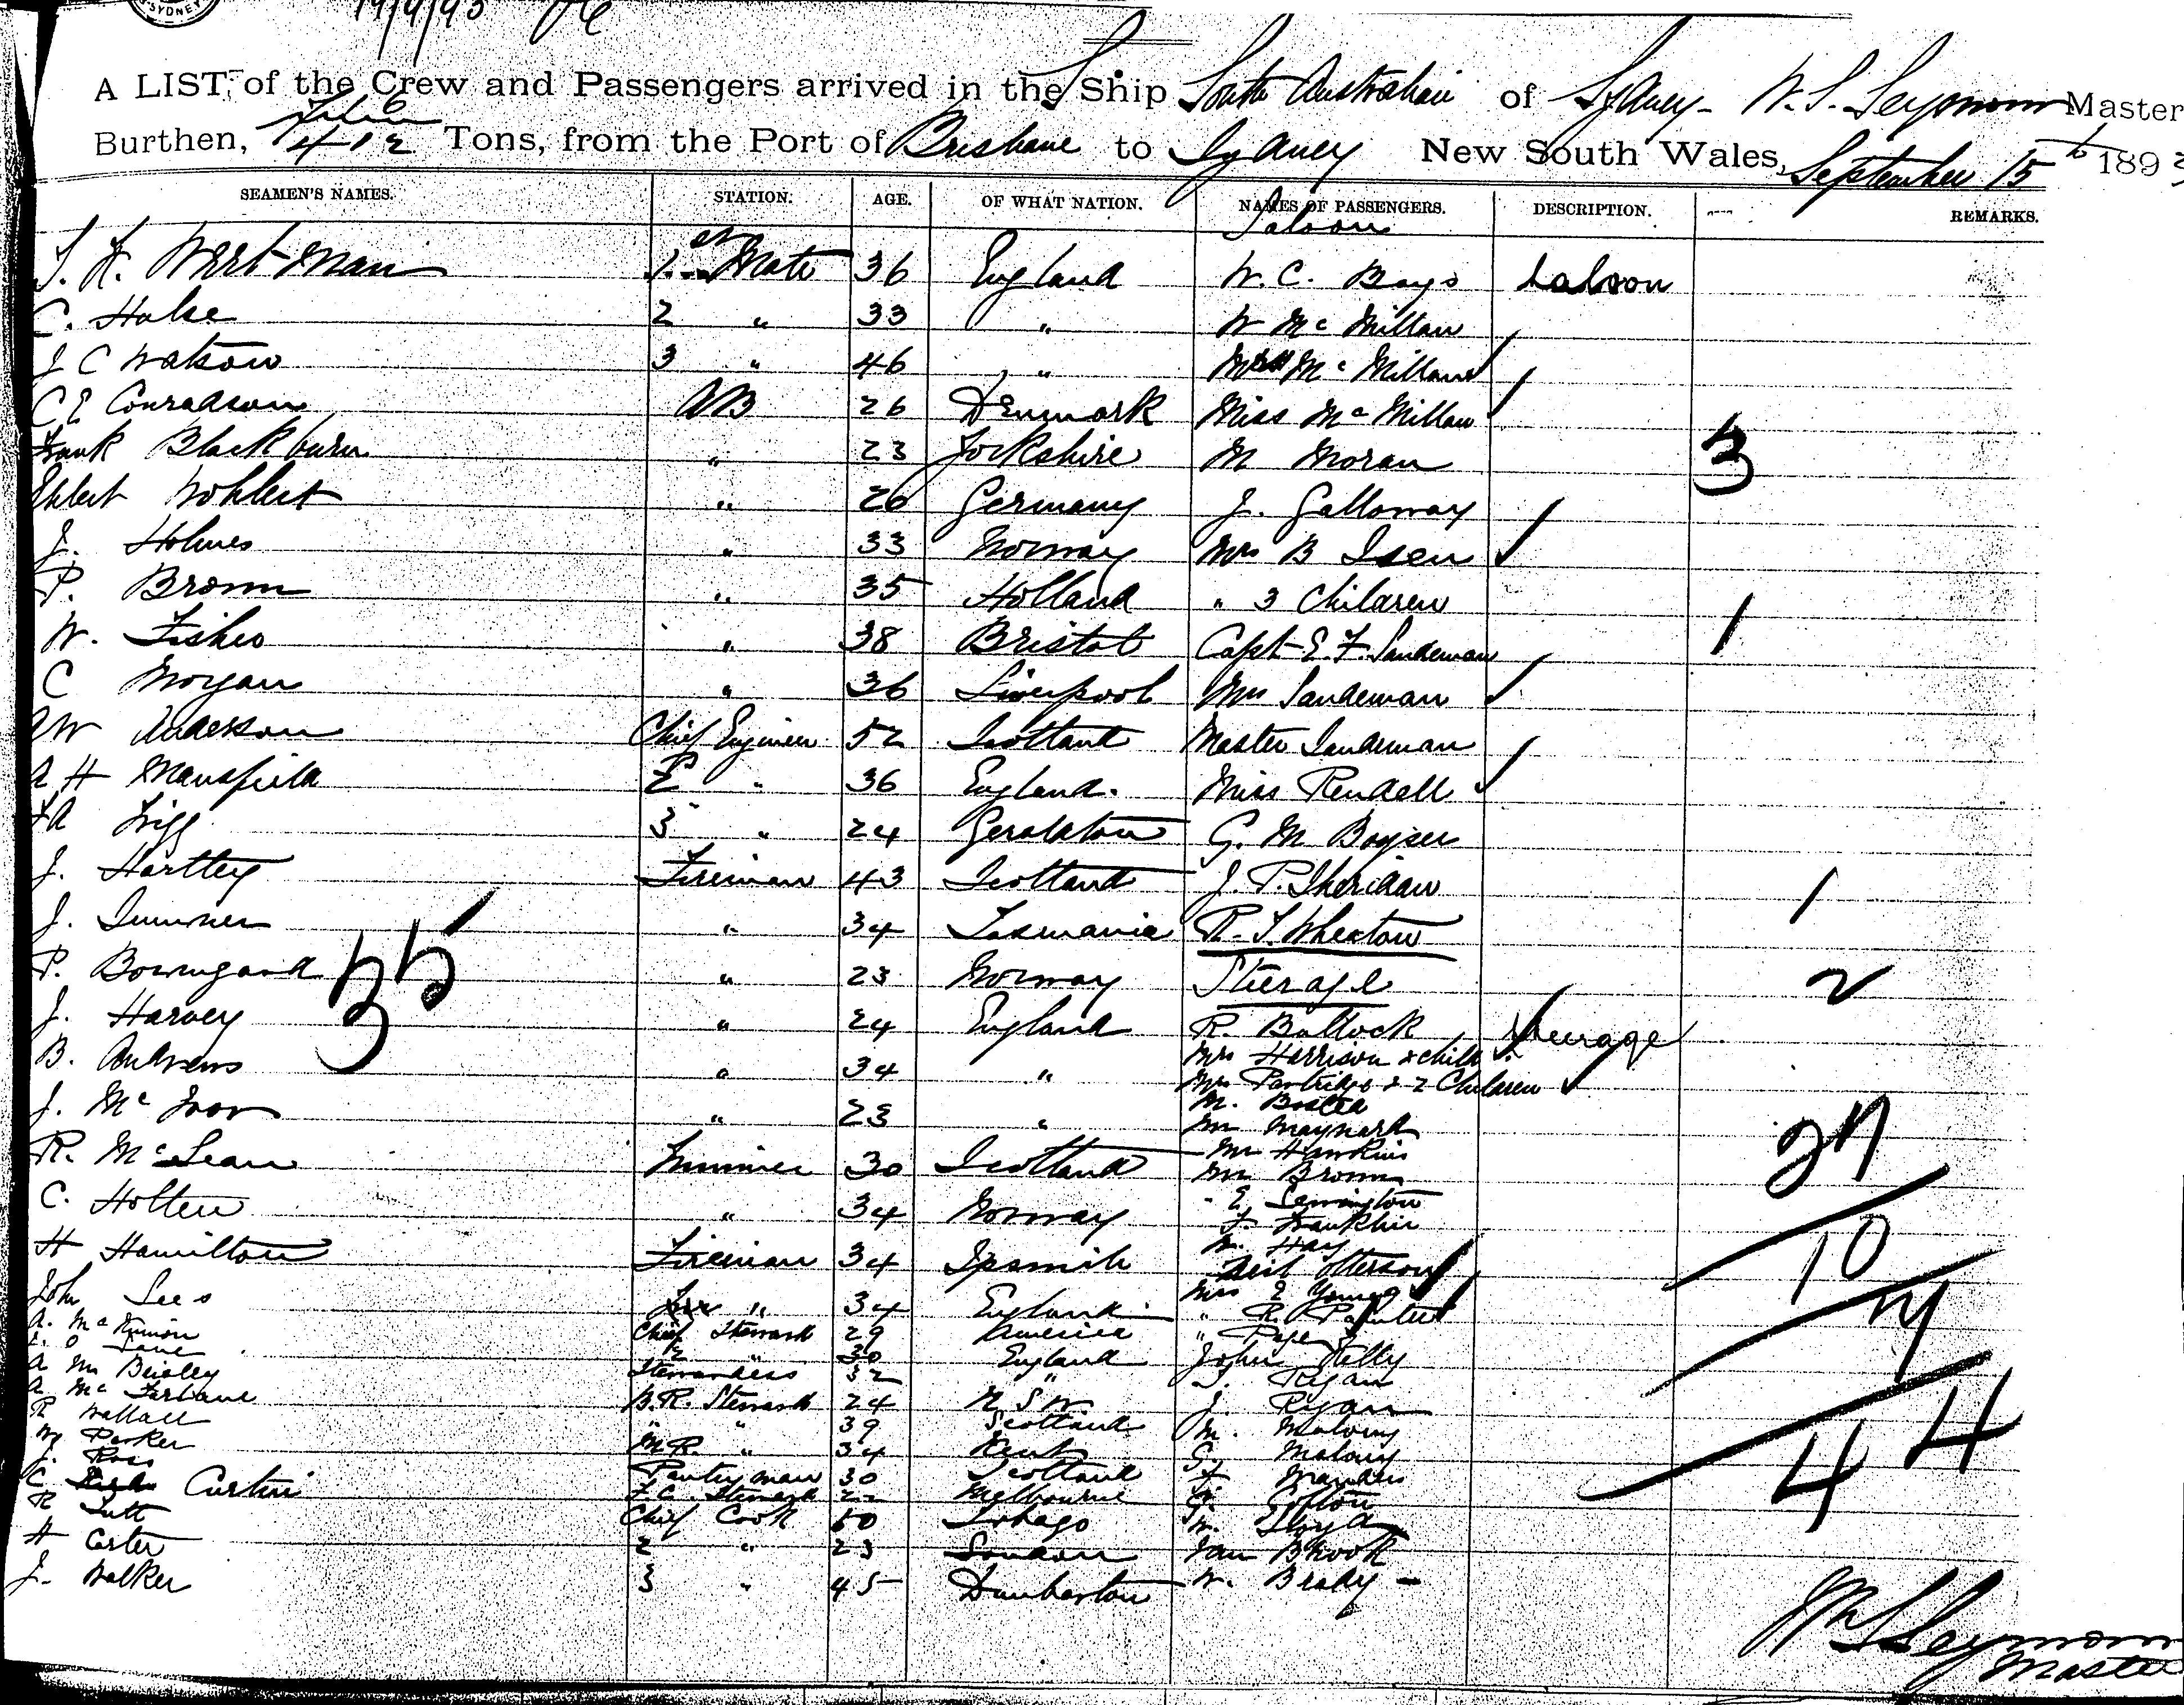 SYDNEY
19/9/93
A LIST, of the Crew and Passengers arrived in the S. Ship South Australian of Sydney - W. S. Seymour Master
Burthen, 412 Tons, from the Port of Brisbane to Sydney New South Wales, September 15th 1893
SEAMEN'S NAMES. STATION. AGE. OF WHAT NATION. NAMES OF PASSENGERS. DESCRIPTION. REMARKS.
Saloon
1st Mate 36 England W. C. Bays Saloon
C. Hulse 2 " 33 " W Mc Millan
J C Watson 3 " 46 " Mrs Mc Millan
C E Conradson AB 26 Denmark Miss Mc Millan
Frank Blackburn " 23 Yorkshire M Moran 3
Ehlert Wohlert " 26 Germany J. Galloway
J. Holmes " 33 Norway Mrs B Isen
P. Brown " 35 Holland " 3 Children
W. Fisher " 38 Bristol Capt E. F. Sandeman 1
C Morgan " 36 Liverpool Mrs Sandeman
A W Anderson Chief Engineer 52 Scotland Master Sandeman
A H Mansfield 2 " 36 England. Miss Rendell
3 " 24 Geraldton G. M Boyser
J. Hartley Fireman 43 Scotland J. P. Sheridan 1
J. Sumner " 34 Tasmania R. S. Wheaton
35
P. " 23 Norway Steerage 2
J. Harvey " 24 England R. Bullock Steerage
B. Andrews " 34 " Mrs Harrison & child
Mrs Partridge & 2 Children
J. Mc Ivor " 23 " M.
Mr Maynard 27
R. McLean Trimmer 30 Scotland Mr Hawkins
Mr Brown
C. Holten " 34 Norway
F. Franklin 10
H Hamilton Fireman 34 Ipswich W. Hay
John Lees " 34 England Mrs E Young
" R. Painter 7
A. Mc Kinnon Chief Steward 29 America " Page
Lane 2 " 30 England John Kelly
A M Beisley Stewardess 32 " Ryan
A. Mc Farlane B.R. Steward 24 N S W J. Ryan
R Wallace " " 39 Scotland M. Malony 44
W Parker M R. " 34 Kent G Malony
J. Ross Pantryman 30 Scotland
C Curtin F. C. Steward 22 Melbourne
R Tutt Chief Cook 50 Tobago W. Lloyd
H Carter 2 " 23 London Sam Brook
J. Walker 3 " 45 Dumbarton W. Brady -
Wm S Seymour
Master